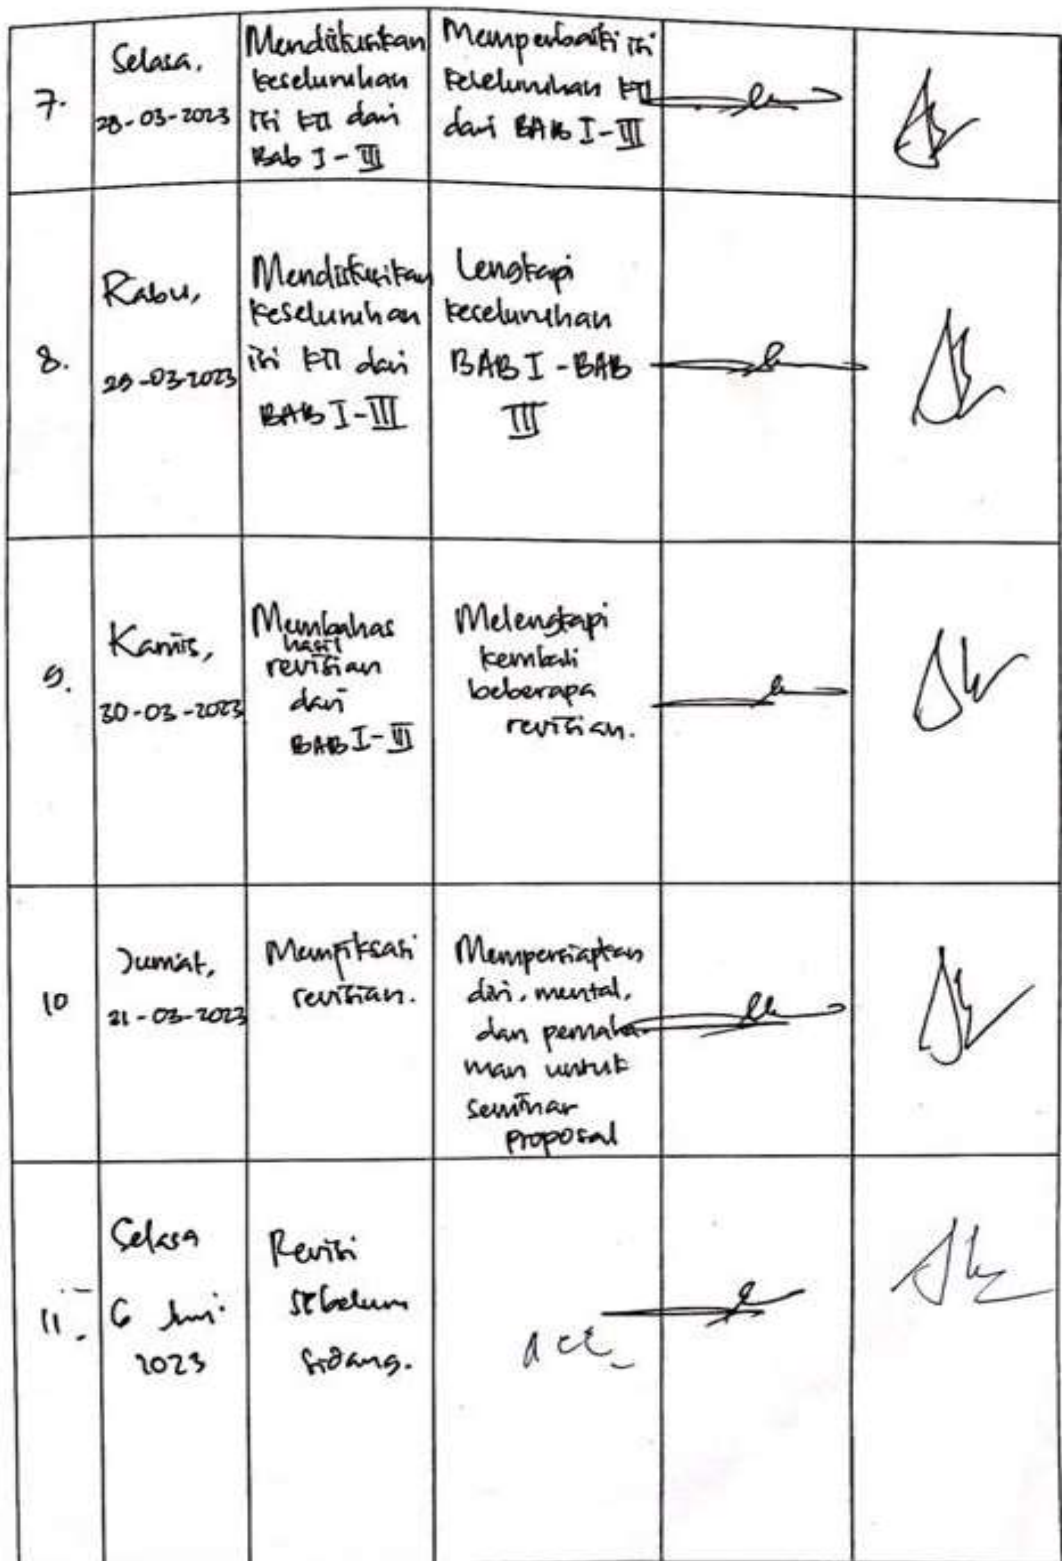 7.
Selasa,
28-03-2023
Mendiskusikan
keseluruhan
isi KTI dari
Bab I - III
Memperbaiki isi
keseluruhan KTI
dari BAB I - III
8.
Rabu,
29-03-2023
Mendiskusikan
keseluruhan
isi KTI dari
BAB I - III
Lengkapi
keseluruhan
BAB I - BAB
III
9.
Kamis,
30-03-2023
Membahas
hasil
revisian
dari
BAB I - III
Melengkapi
kembali
beberapa
revisian.
10
Jumat,
31-03-2023
Memfiksasi
revisian.
Mempersiapkan
diri, mental,
dan pemaha-
man untuk
seminar
proposal
11.
Selasa
6 Juni
2023
Revisi
sebelum
sidang.
acc